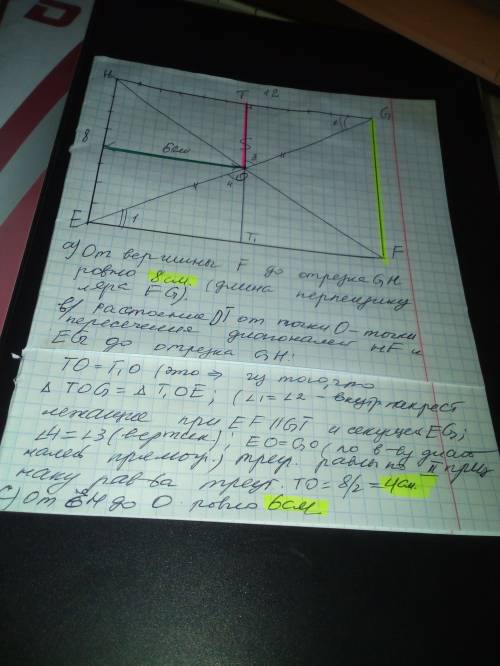 H
T
12
G
2
8
6см
S
3
4
O
E
1
T₁
F
а) От вершины F до отрезка GH
равно 8см. (длина перпендику
ляра FG)
в) расстояние ОТ от точки О - точки
пересечения диагоналей HF и
EG до отрезка GH:
TO = T₁O (это => из того, что
△ TOG = △ T₁OE; (∠1 = ∠2 - внутр накрест
лежащие при EF || GT и секущей EG;
∠4 = ∠3 (вертик); EO = GO (по в-ву диаго
налей прямоуг.) треуг. равны по II приз
наку рав-ва треуг. TO = 8/2 = 4см.
с) От EH до O равно 6см